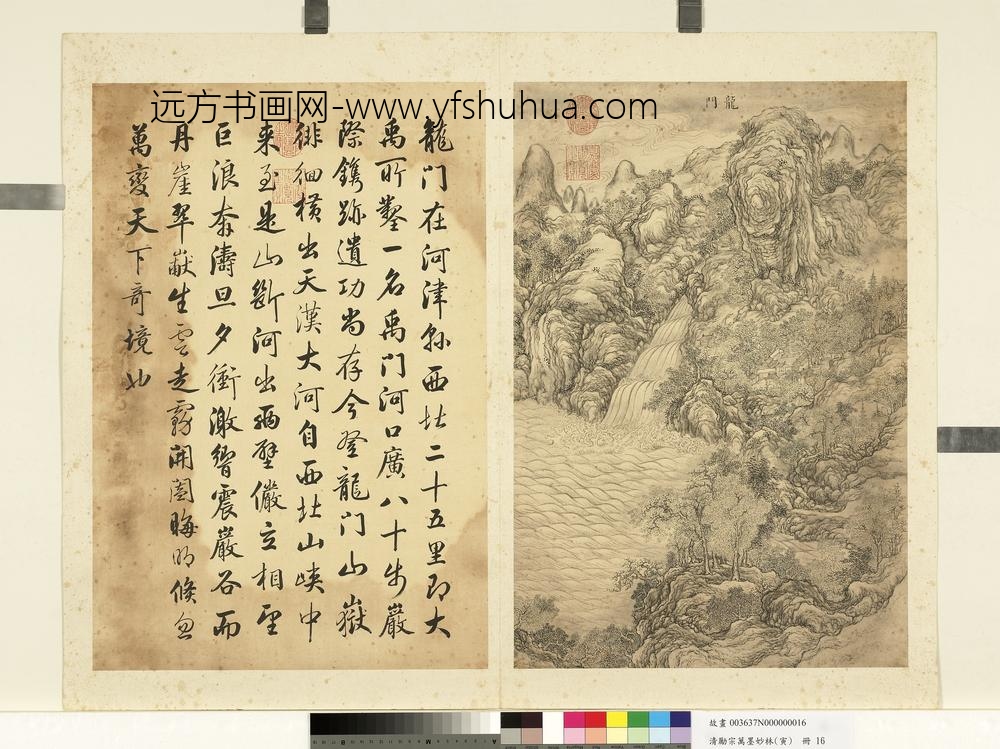 远方书画网-www.yfshuhua.com
龍門
龍门在河津縣西北二十五里即大
禹所鑿一名禹门河口廣八十步巖
際鐫跡遺功尚存今登龍门山嶽
徘徊橫出天漢大河自西北山峽中
来至是山斷河出兩壁儼立相望
巨浪奔濤旦夕衝激響震巖谷而
丹崖翠巘生雲走霧開闔晦明倏忽
萬變天下奇境也
故畫 003637N000000016
清勵宗萬墨妙林(寅) 冊 16